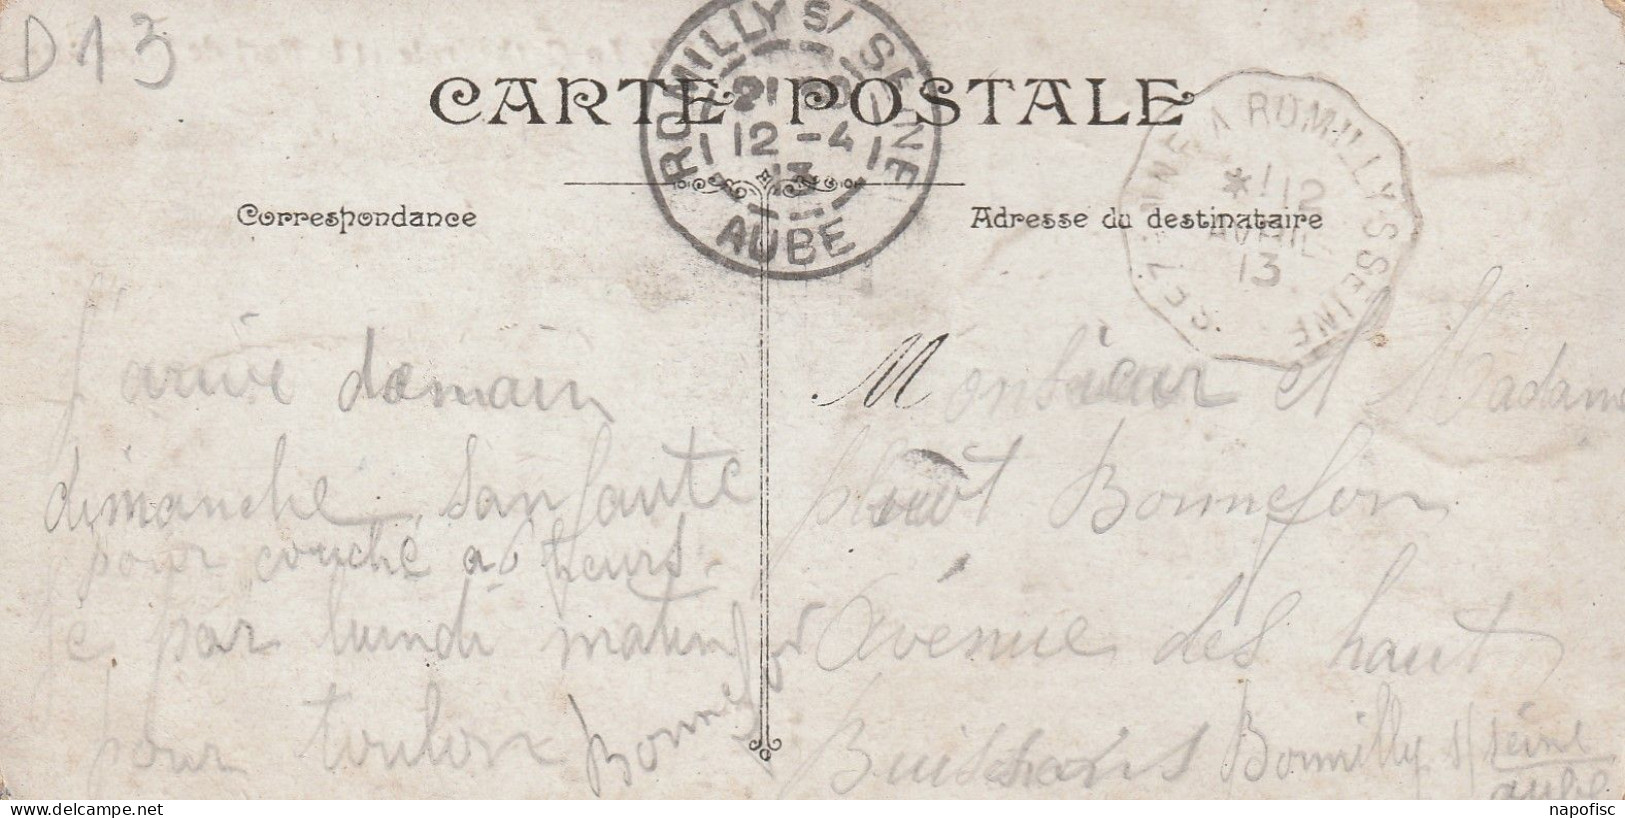 D13
CARTE POSTALE
ROMILLY S/ SEINE
21
12 - 4
13
AUBE
A ROMILLY-S-SEINE
* 12
AVRIL
13
Correspondance
Adresse du destinataire
J'arrive demain
dimanche san faute
pour couché a 6 heurs
je par lundi matin
pour toulon Bonnefon
Monsieur et Madame
Bonnefon
Avenue des haut
Buischons Romilly s/ seine
aube
napofisc